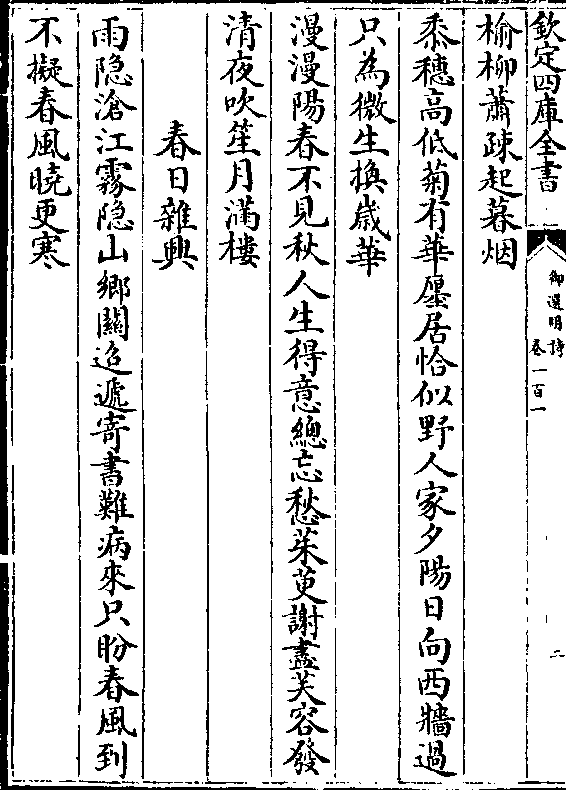 欽定四庫全書
御選明詩
卷一百一
二
榆柳蕭疎起暮烟
黍穗高低菊有華廛居恰似野人家夕陽日向西牆過
只為微生換歲華
漫漫陽春不見秋人生得意總忘愁茱萸謝盡芙容發
清夜吹笙月滿樓
春日雜興
雨隐滄江霧隐山鄉關迢遞寄書難病來只盼春風到
不擬春風曉更寒